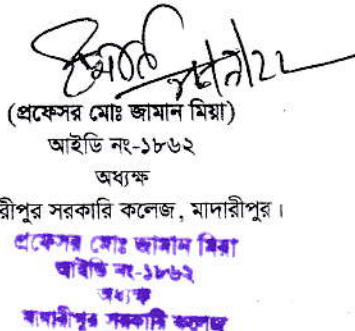 (প্রফেসর মোঃ জামান মিয়া)
আইডি নং-১৮৬২
অধ্যক্ষ
রীপুর সরকারি কলেজ, মাদারীপুর।
প্রফেসর মোঃ জামান মিয়া
আইডি নং-১৮৬২
অধ্যক্ষ
মাদারীপুর সরকারি কলেজ